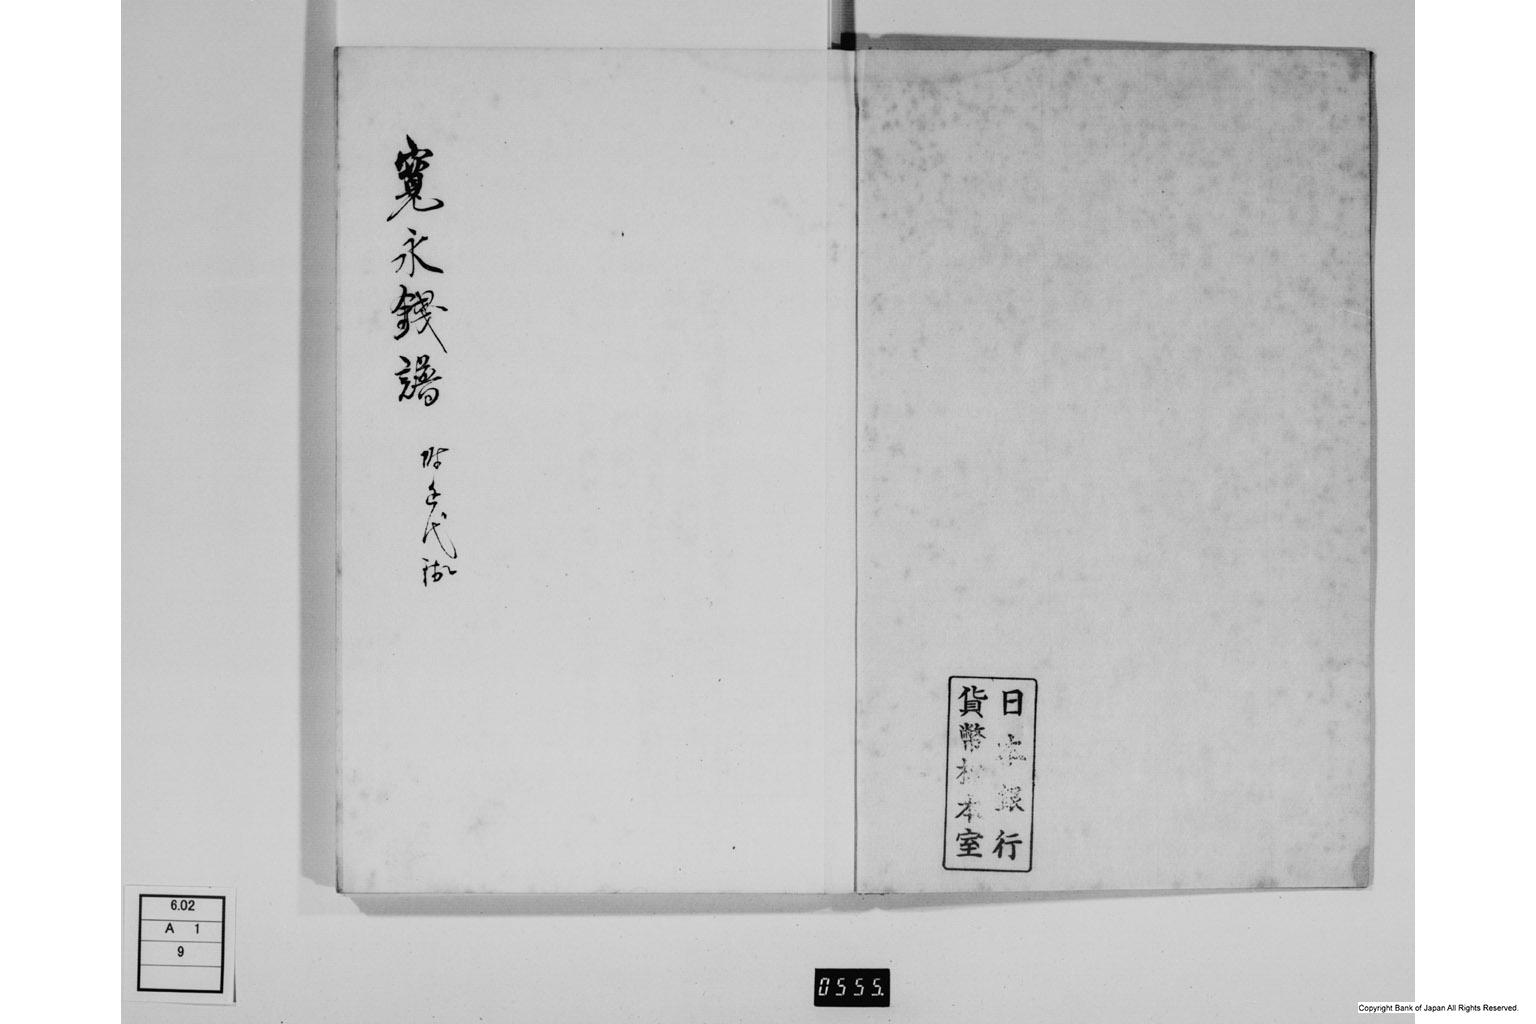 日本銀行
貨幣標本室
寛永銭譜
附年代
6.02
A 1
9
0555.
Copyright Bank of Japan All Rights Reserved.